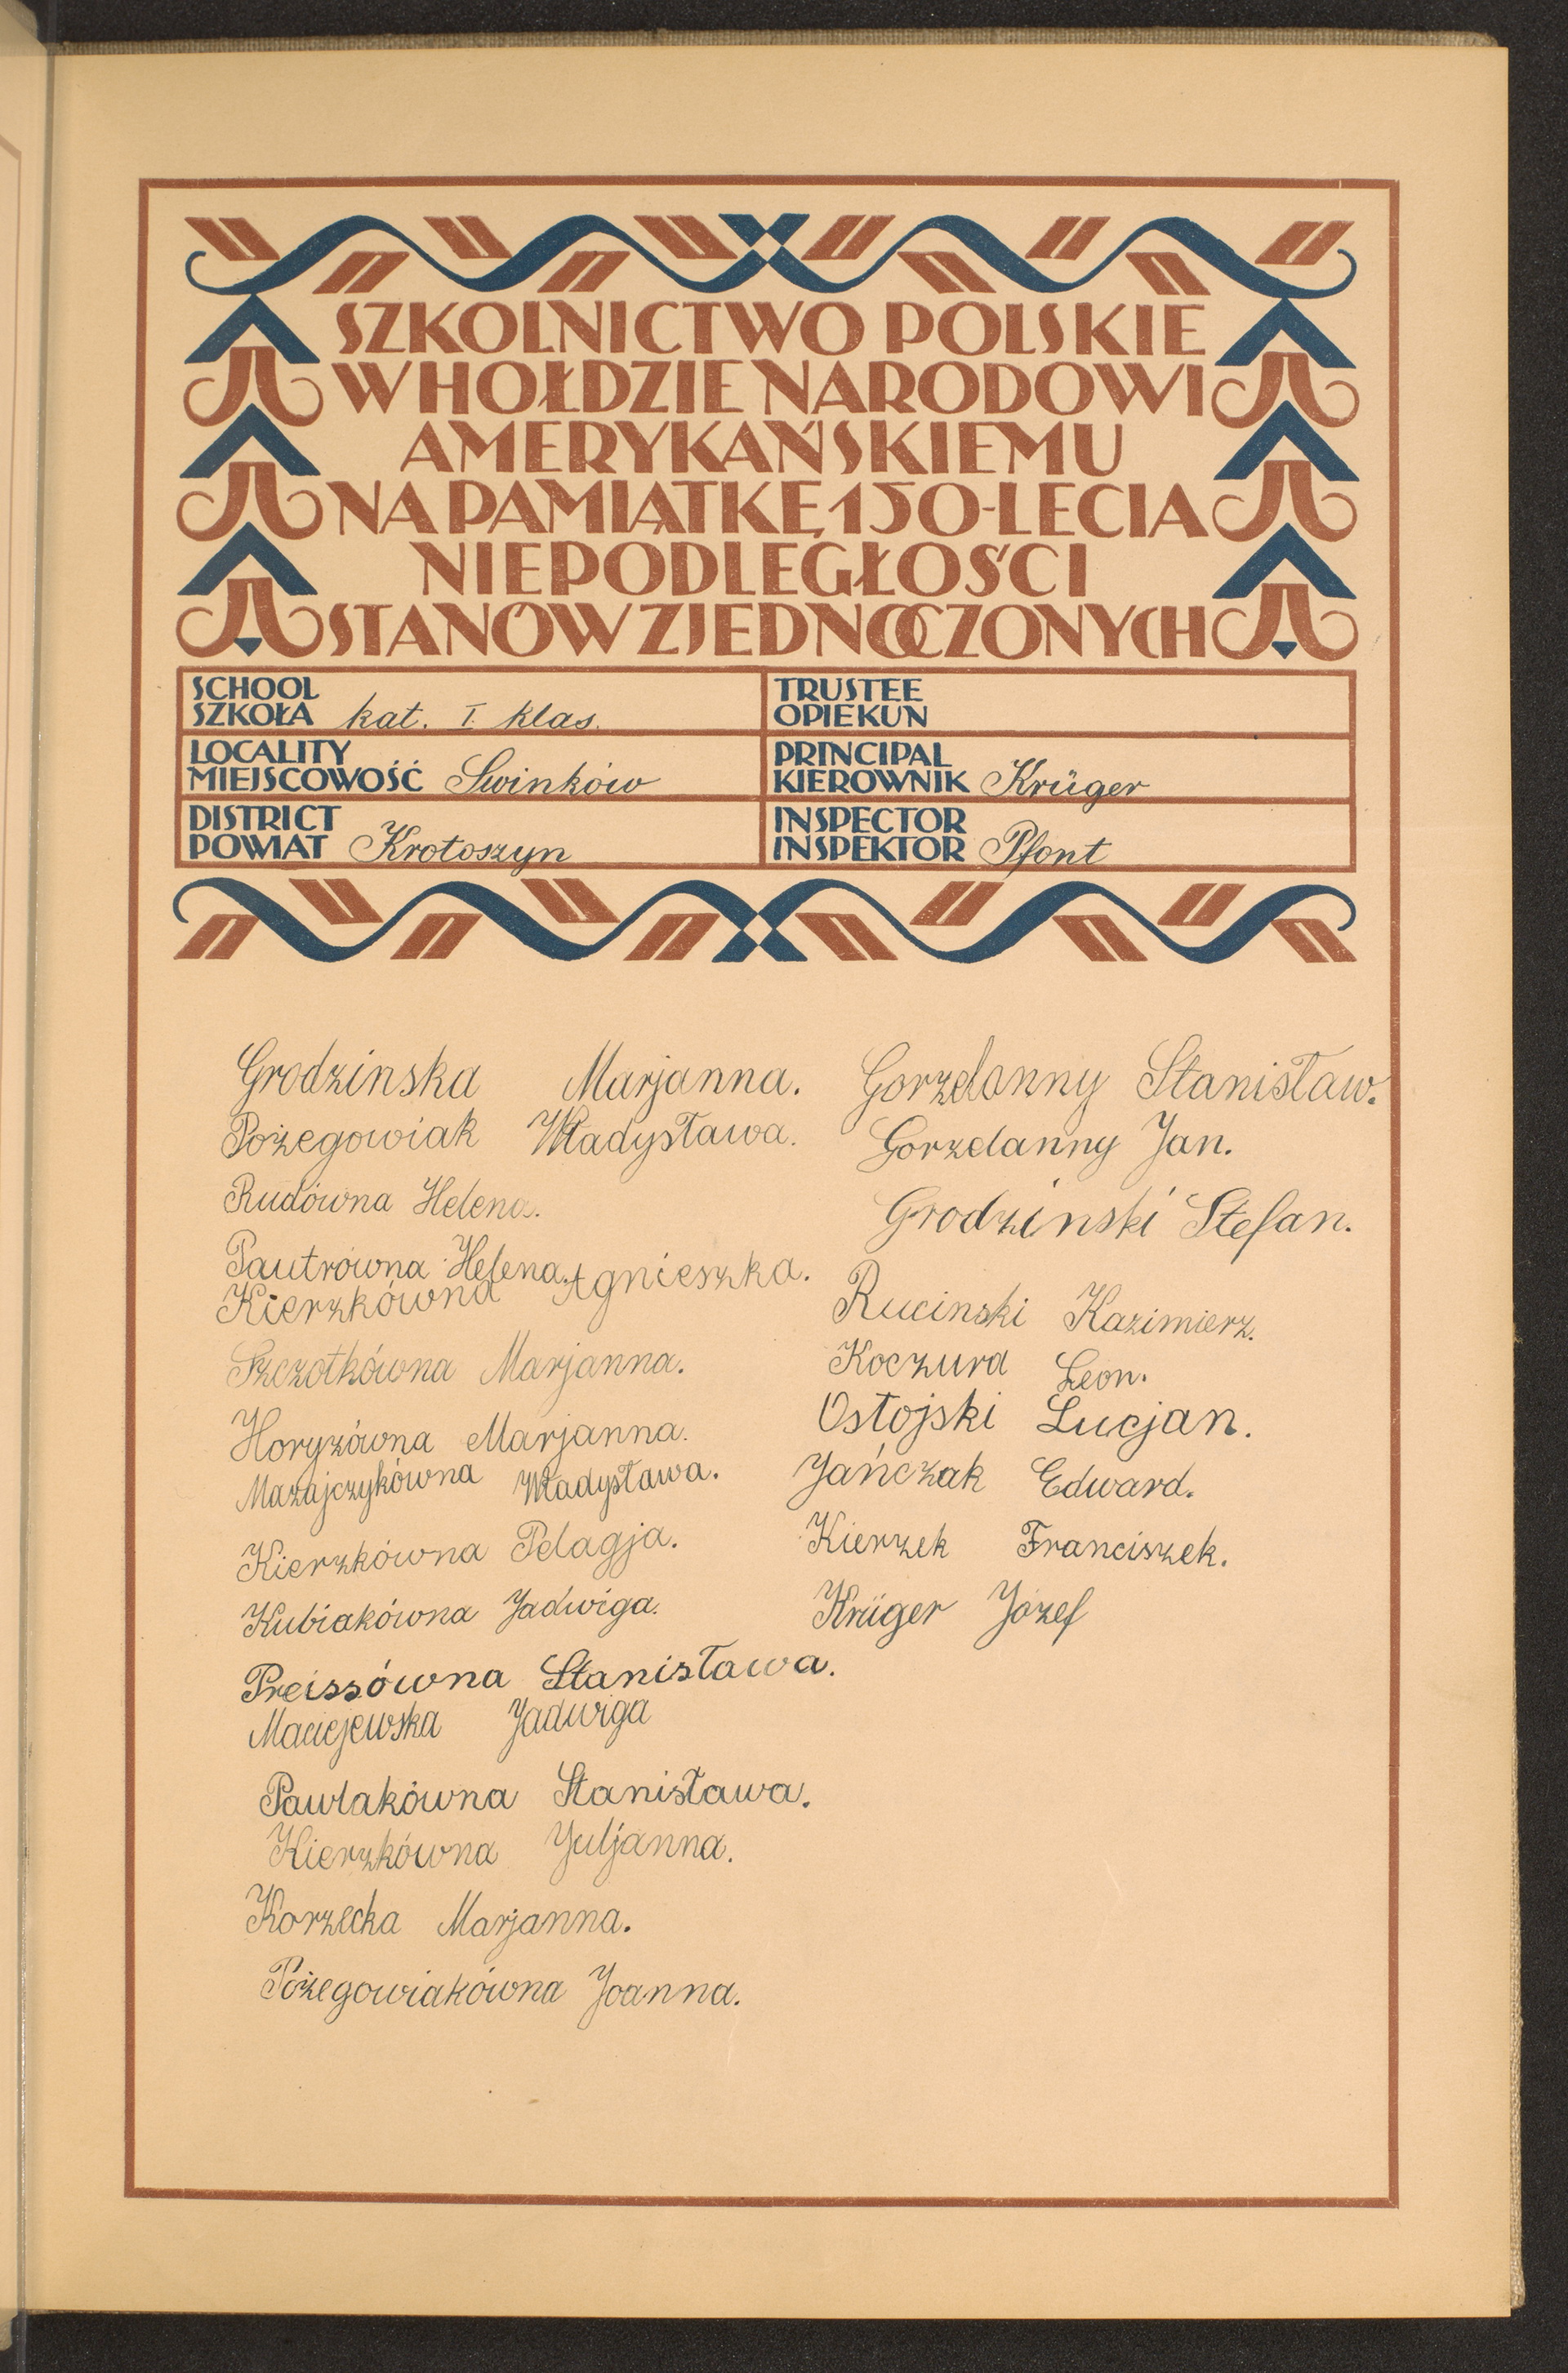 SZKOLNICTWO POLSKIE
W HOŁDZIE NARODOWI
AMERYKAŃSKIEMU
NA PAMIĄTKĘ 150-LECIA
NIEPODLEGŁOŚCI
STANÓW ZJEDNOCZONYCH
SCHOOL
SZKOŁA kat. I klas.
TRUSTEE
OPIEKUN
LOCALITY
MIEJSCOWOŚĆ Swinków
PRINCIPAL
KIEROWNIK Krüger
DISTRICT
POWIAT Krotoszyn
INSPECTOR
INSPEKTOR Pfont
Grodzinska Marjanna.
Pożegowiak Władysława.
Rudówna Helena.
Pautrówna Helena.
Kierzkówna Agnieszka.
Szczotkówna Marjanna.
Horyzówna Marjanna.
Mazajczykówna Władysława.
Kierzkówna Pelagja.
Kubiakówna Jadwiga.
Preissówna Stanisława.
Maciejewska Jadwiga
Pawlakówna Stanisława.
Kierzkówna Juljanna.
Korzecka Marjanna.
Pożegowiakówna Joanna.
Gorzelanny Stanisław.
Gorzelanny Jan.
Grodzinski Stefan.
Rucinski Kazimierz.
Koczura Leon.
Ostojski Lucjan.
Jańczak Edward.
Kierzek Franciszek.
Krüger Józef